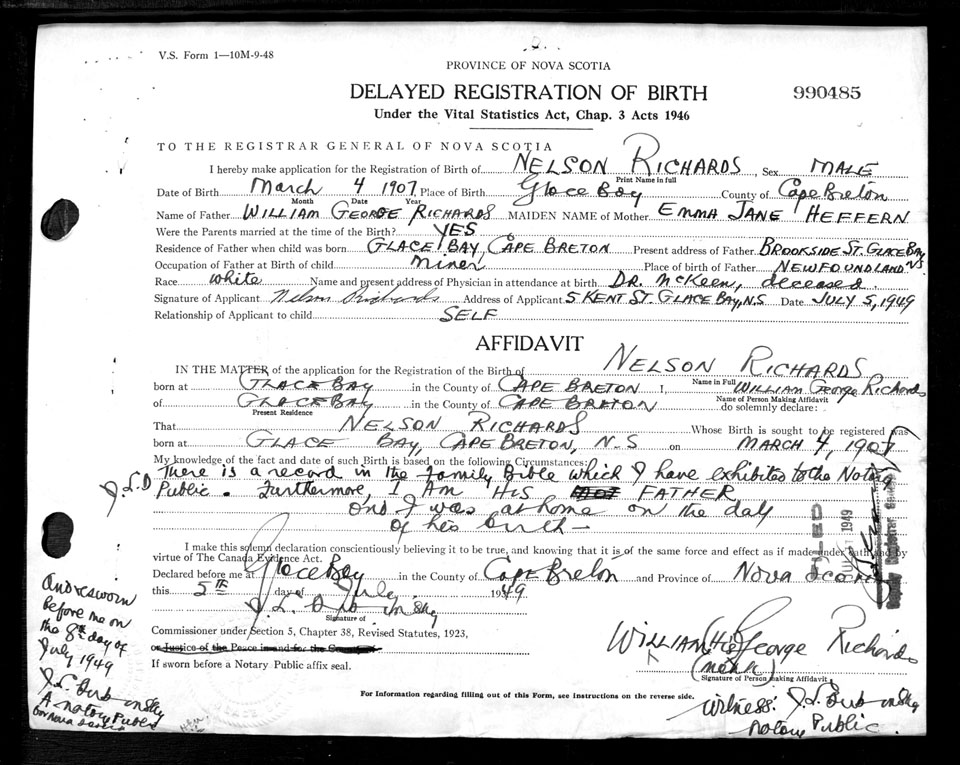 V.S. Form 1—10M-9-48
PROVINCE OF NOVA SCOTIA
DELAYED REGISTRATION OF BIRTH
990485
Under the Vital Statistics Act, Chap. 3 Acts 1946
TO THE REGISTRAR GENERAL OF NOVA SCOTIA
I hereby make application for the Registration of Birth of NELSON RICHARDS, Sex MALE
Print Name in full
Date of Birth March 4 1907 Place of Birth Glace Bay County of Cape Breton
Month Date Year
Name of Father WILLIAM GEORGE RICHARDS MAIDEN NAME of Mother EMMA JANE HEFFERN
Were the Parents married at the time of the Birth? YES
Residence of Father when child was born GLACE BAY, CAPE BRETON Present address of Father BROOKSIDE ST. GLACE BAY, N.S.
Occupation of Father at Birth of child miner Place of birth of Father NEWFOUNDLAND
Race white Name and present address of Physician in attendance at birth DR. McKEEN, deceased
Signature of Applicant Nelson Richards Address of Applicant 5 KENT ST. GLACE BAY, N.S. Date JULY 5, 1949
Relationship of Applicant to child SELF
AFFIDAVIT
IN THE MATTER of the application for the Registration of the Birth of NELSON RICHARDS
Name in Full
born at GLACE BAY in the County of CAPE BRETON I, WILLIAM George Richards
Name of Person Making Affidavit
of GLACE BAY in the County of CAPE BRETON do solemnly declare:
Present Residence
That NELSON RICHARDS Whose Birth is sought to be registered was
born at GLACE BAY, CAPE BRETON, N.S on MARCH 4, 1907
My knowledge of the fact and date of such Birth is based on the following Circumstances:
There is a record in the family Bible which I have exhibited to the Notary
Public. Furthermore, I AM HIS FATHER
and I was at home on the day
of his birth—
FILED
1949
I make this solemn declaration conscientiously believing it to be true, and knowing that it is of the same force and effect as if made under oath and by
virtue of The Canada Evidence Act.
Declared before me at Glace Bay in the County of Cape Breton and Province of Nova Scotia
this 5TH day of July 1949
Signature of
Commissioner under Section 5, Chapter 38, Revised Statutes, 1923,
or Justice of the Peace in and for the County of
If sworn before a Notary Public affix seal.
WILLIAM (His) George Richards
(mark)
Signature of Person making Affidavit
For Information regarding filling out of this Form, see instructions on the reverse side.
witness:
notary Public.
And resworn
before me on
the 8th day of
July 1949
A notary Public
for Nova Scotia